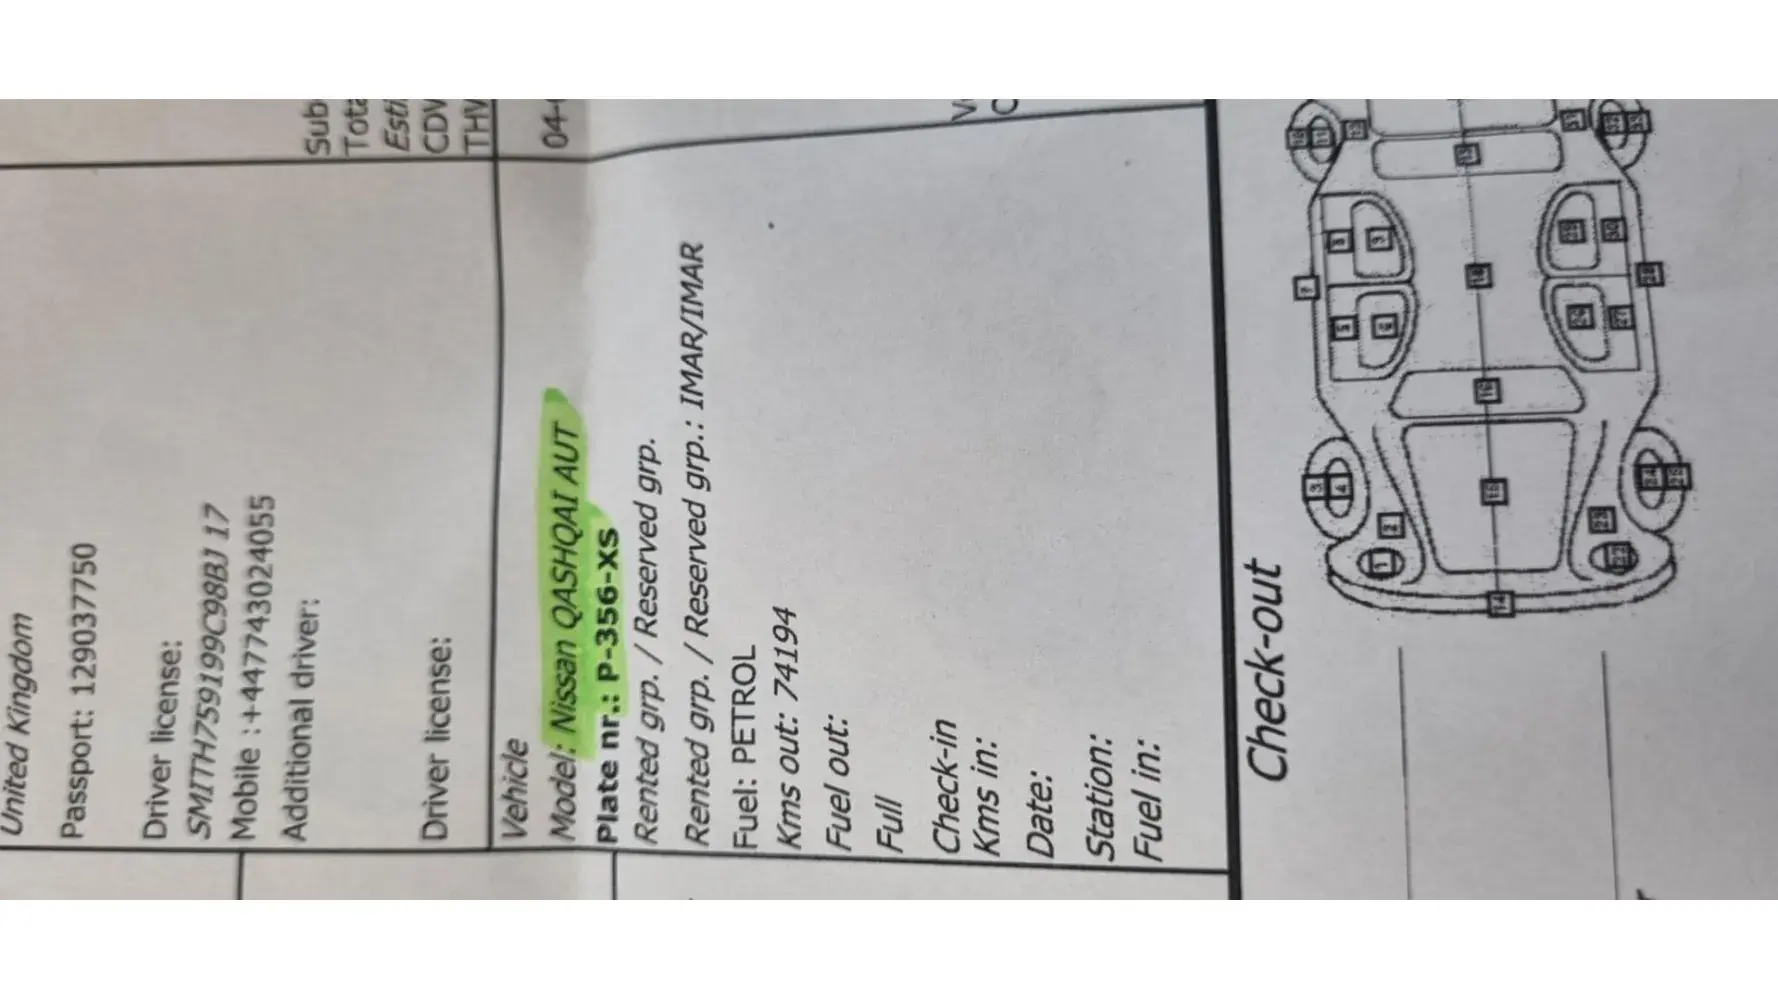 United Kingdom
Passport: 129037750
Driver license:
SMITH759199C98BJ 17
Mobile :+447743024055
Additional driver:
Driver license:
Sub
Tota
Esti
CDV
THV
Vehicle
Model: Nissan QASHQAI AUT
Plate nr.: P-356-XS
Rented grp. / Reserved grp.
Rented grp. / Reserved grp.: IMAR/IMAR
Fuel: PETROL
Kms out: 74194
Fuel out:
Full
Check-in
Kms in:
Date:
Station:
Fuel in:
04-
Check-out
7
5
6
3
4
2
1
14
15
16
18
19